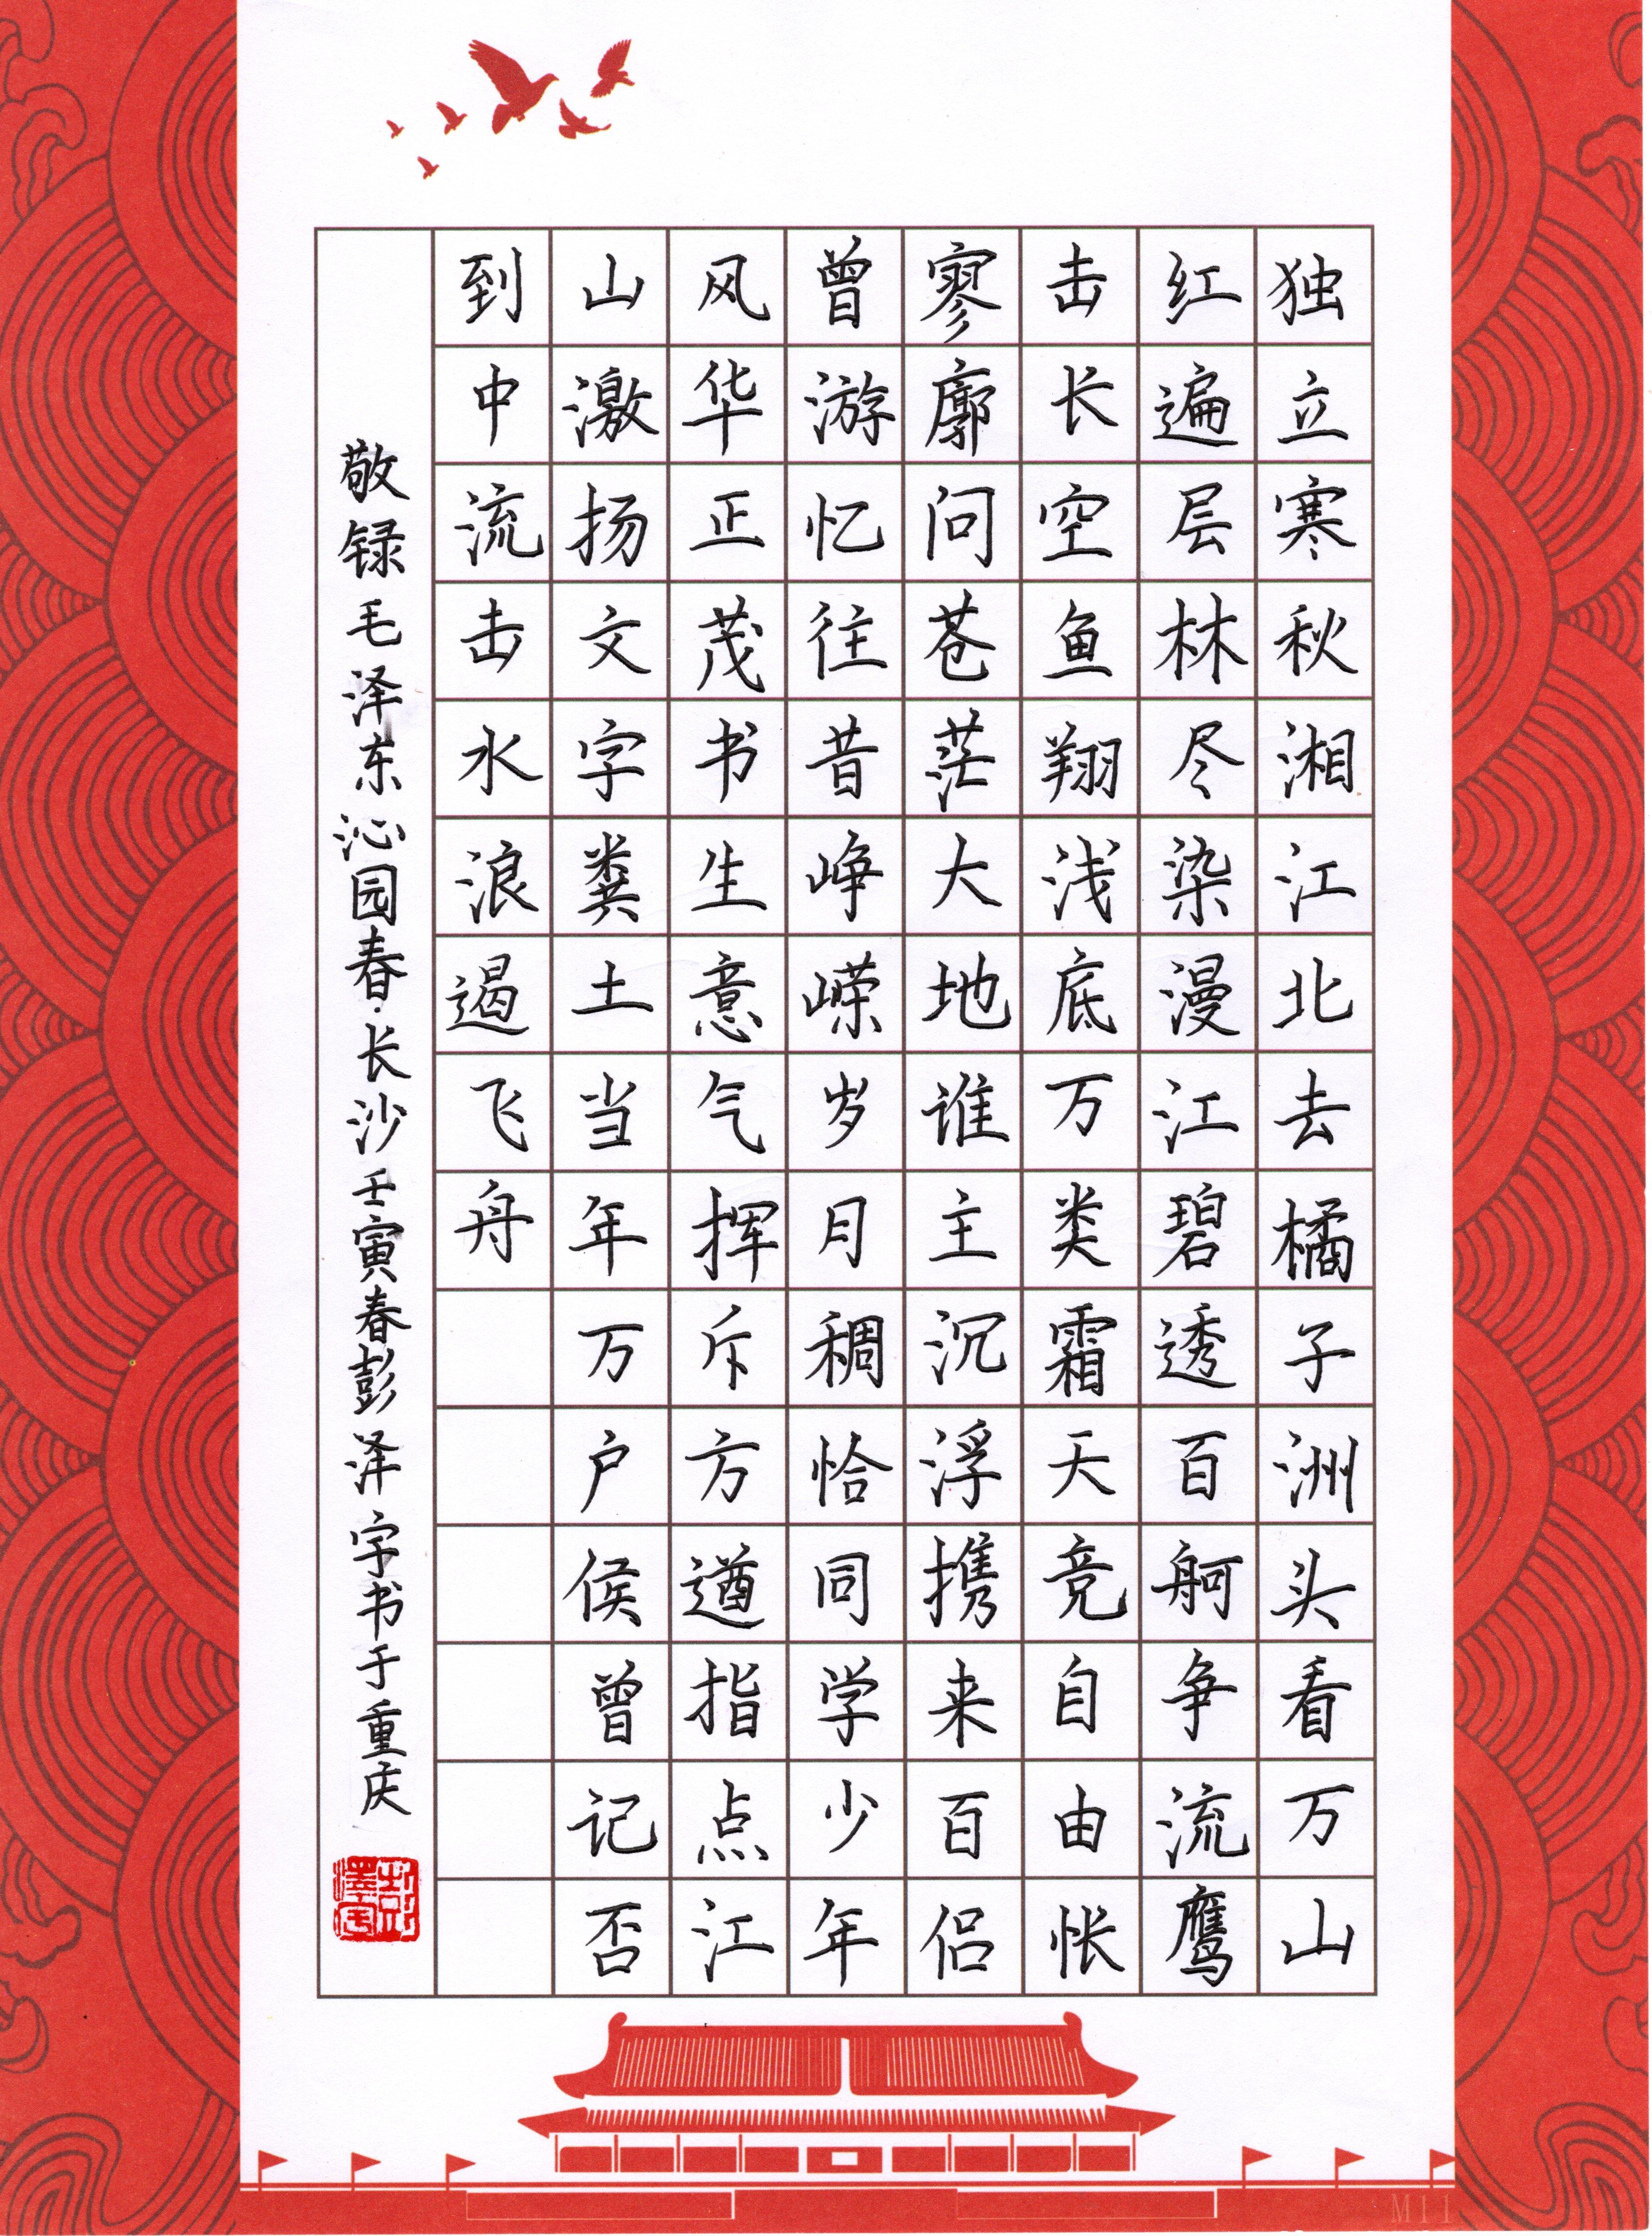 独立寒秋湘江北去橘子洲头看万山
红遍层林尽染漫江碧透百舸争流鹰
击长空鱼翔浅底万类霜天竞自由怅
寥廓问苍茫大地谁主沉浮携来百侣
曾游忆往昔峥嵘岁月稠恰同学少年
风华正茂书生意气挥斥方遒指点江
山激扬文字粪土当年万户侯曾记否
到中流击水浪遏飞舟
敬录毛泽东沁园春·长沙壬寅春彭泽字书于重庆
彭澤字
M11